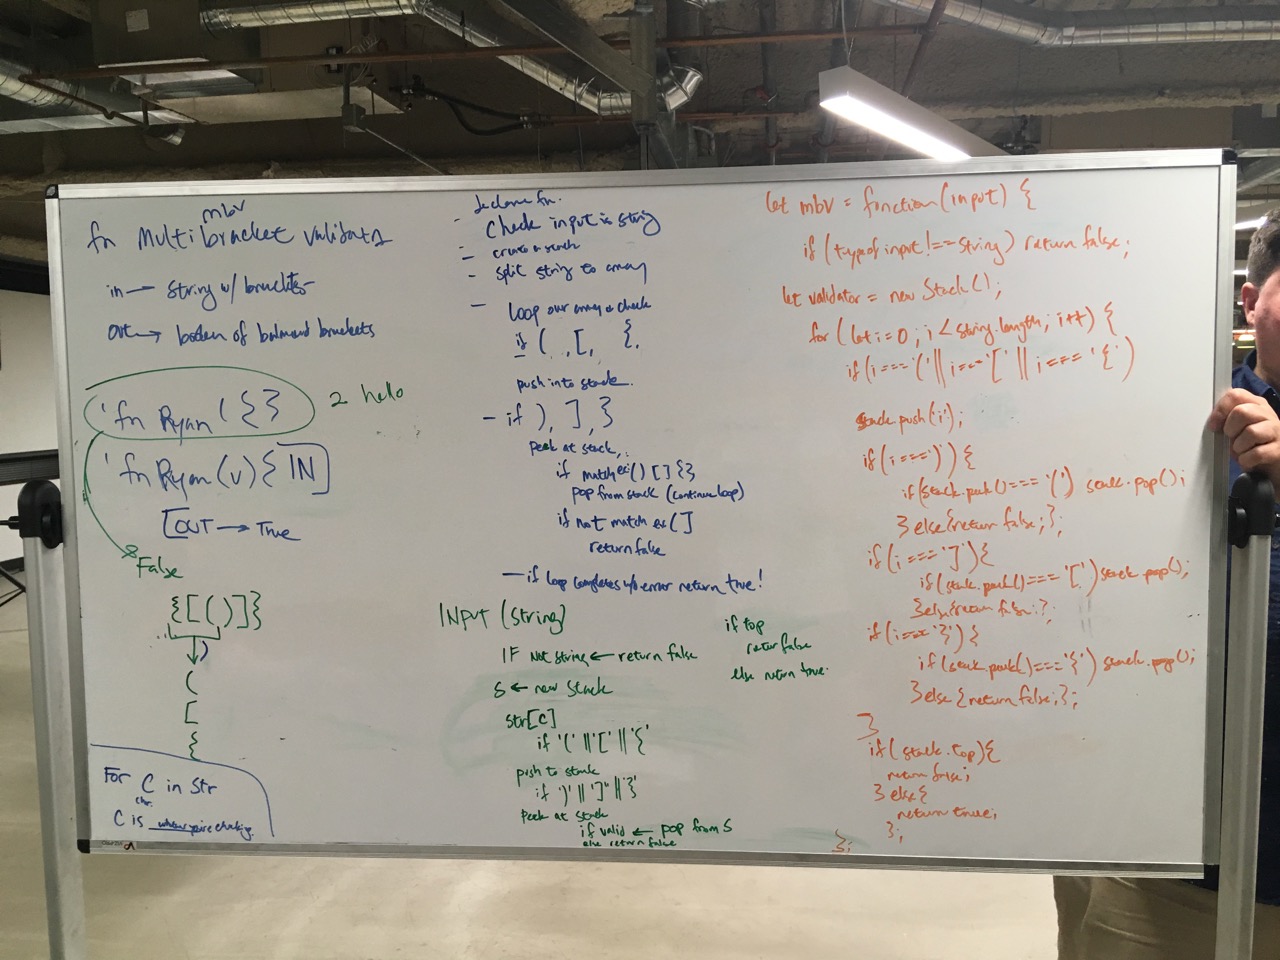 mbv
fn Multibracket validator
in → string w/ brackets
out → boolean of balanced brackets
'fn Ryan ( { }
2 hello
'fn Ryan (v) { IN ]
[OUT → True
False
{[()]}
)
(
[
{
For C in Str
chr.
C is where you're checking
declare fn.
- Check input is string
- create a stack
- split string to array
- loop our array & check
if ( , [ , {.
push into stack.
- if ), ], }
peek at stack,
if match ex: () [] {}
pop from stack (continue loop)
if not match ex (]
return false
- if loop completes w/o error return true!
INPUT (string)
IF Not string ← return false
S ← new Stack
str[c]
if '(' || '[' || '{'
push to stack
if ')' || ']' || '}'
Peek at stack
if valid ← pop from S
else return false
if top
retur false
else return true.
let mbv = function(input) {
if (typeof input !== string) return false;
let validator = new Stack();
for (let i = 0; i < string.length; i++) {
if (i === '(' || i === '[' || i === '{')
stack.push('i');
if (i === ')') {
if (stack.peek() === '(') stack.pop();
} else {return false;};
if (i === ']') {
if (stack.peek() === '[') stack.pop();
} else {return false;};
if (i === '}') {
if (stack.peek() === '{') stack.pop();
} else {return false;};
}
if (stack.top) {
return false;
} else {
return true;
};
};